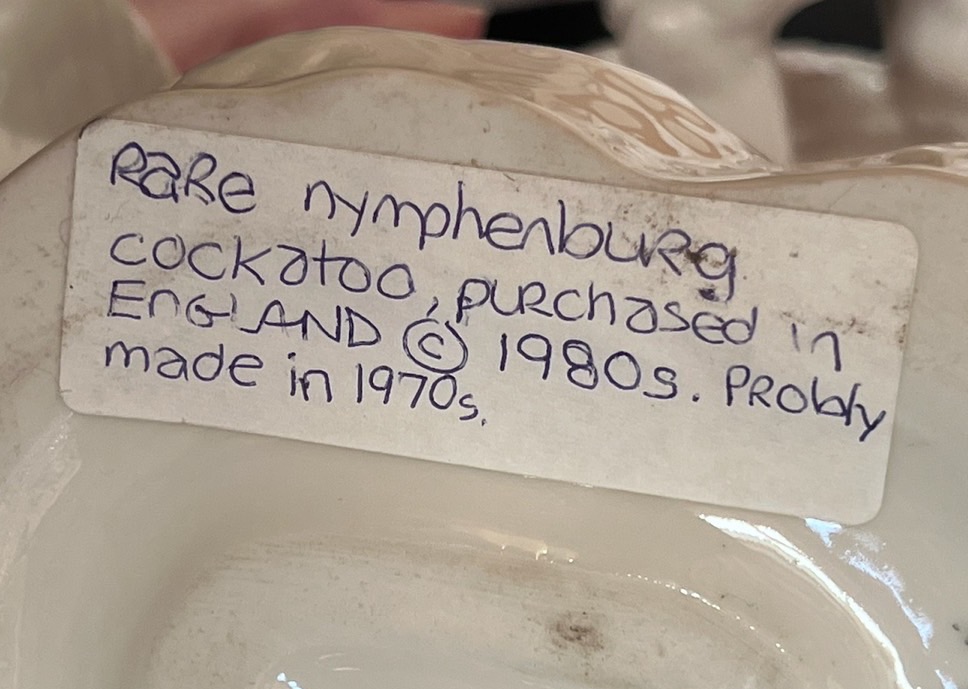 RaRe nymphenbuRg
cockatoo, puRchased in
EnGlAND © 1980s. PRobly
made in 1970s.